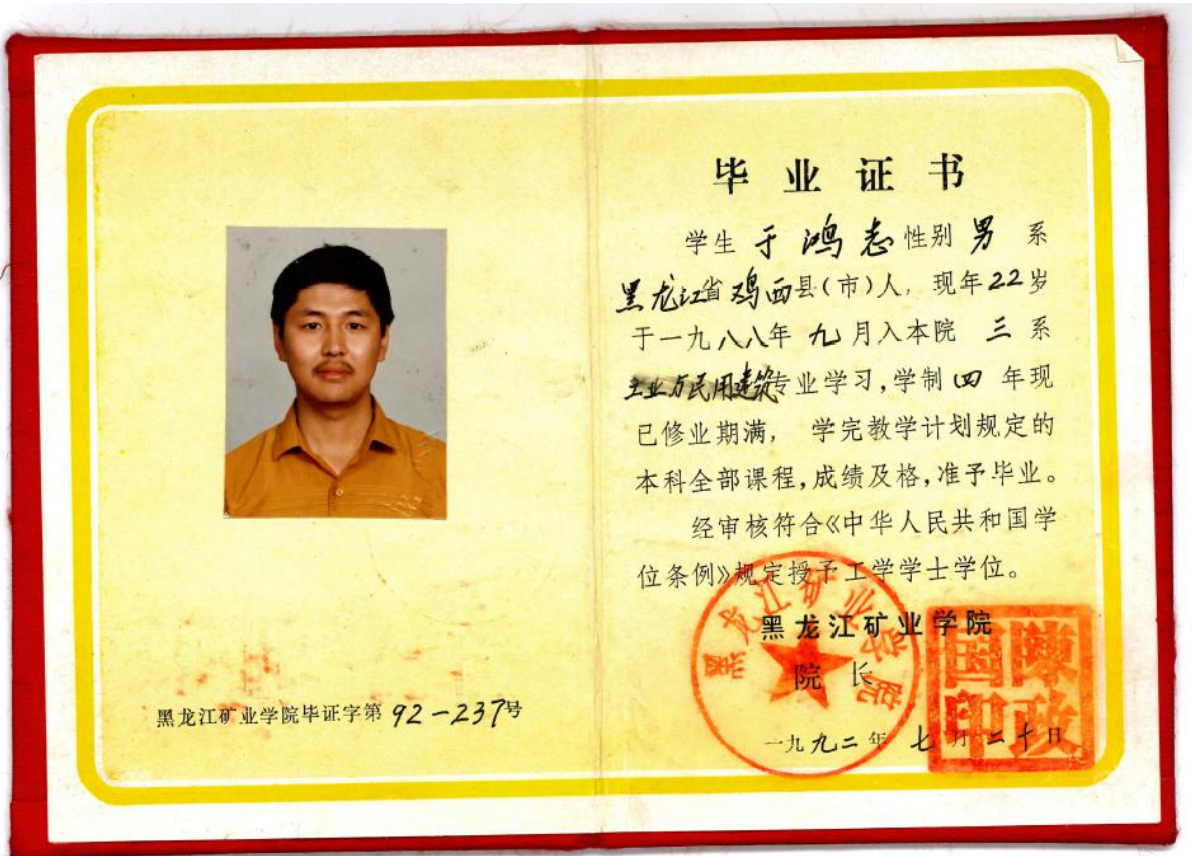 毕业证书
学生 于鸿志 性别 男 系
黑龙江省鸡西县(市)人, 现年22岁
于一九八八年 九 月入本院 三 系
工业与民用建筑专业学习,学制 四 年现
已修业期满, 学完教学计划规定的
本科全部课程,成绩及格,准予毕业。
经审核符合《中华人民共和国学
位条例》规定授予工学学士学位。
黑龙江矿业学院
院 长
一九九二年 七 月二十日
黑龙江矿业学院
陳政国印
黑龙江矿业学院毕证字第 92-237号